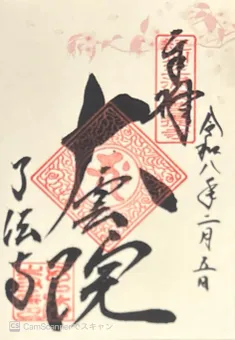 奉拝
令和八年二月五日
大雲院
了法寺
CamScannerでスキャン